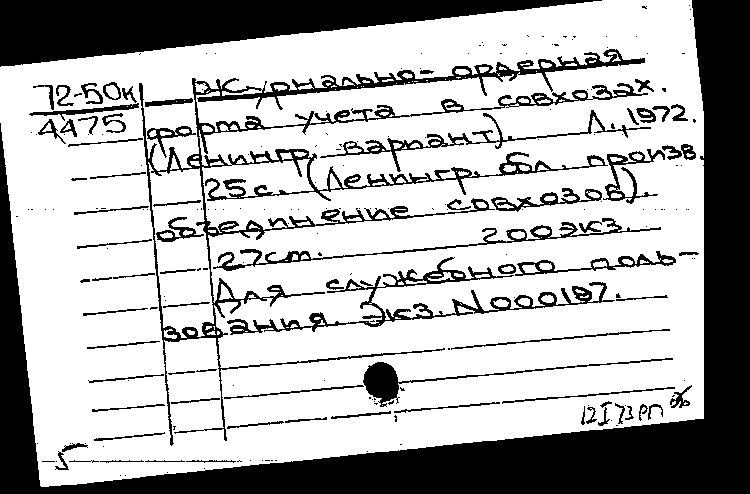 72-50к Журнально-ордерная
4475 форма учета в совхозах.
(Ленингр. вариант). Л., 1972.
25с. (Ленингр. обл. произв.
объединение совхозов).
27см. 200экз.
Для службебного поль-
зования. Экз. N000197.
12 I 73 РП
5